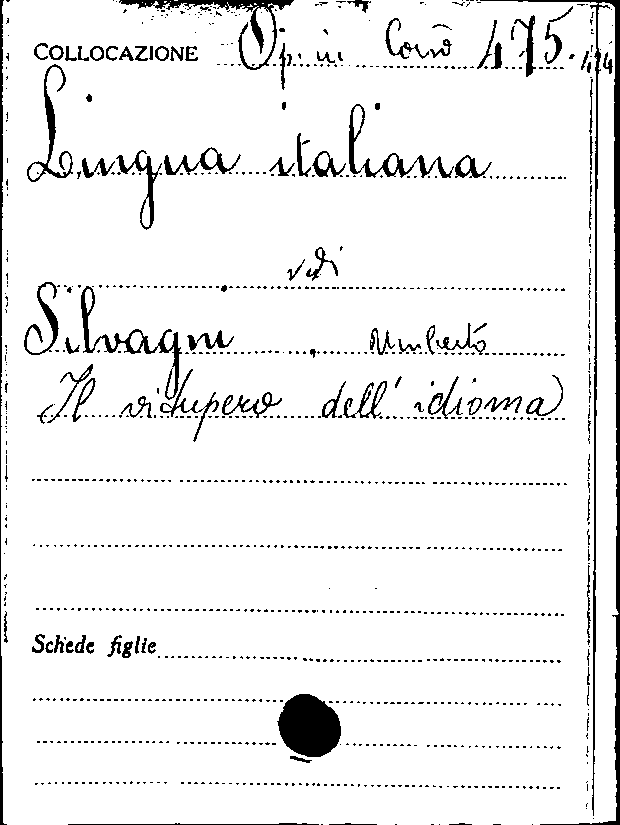 COLLOCAZIONE Op. in Corso 475.
Lingua italiana
vedi
Silvagni, Umberto
Il vitupero dell'idioma
Schede figlie